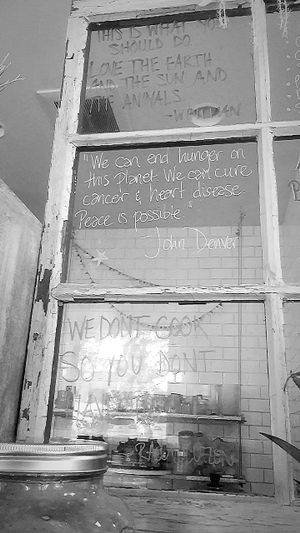 THIS IS WHAT YOU
SHOULD DO.
LOVE THE EARTH
AND THE SUN AND
THE ANIMALS
- WHITMAN
"We can end hunger on
this planet. We can cure
cancer & heart disease.
Peace is possible"
John Denver
WE DONT COOK
SO YOU DONT